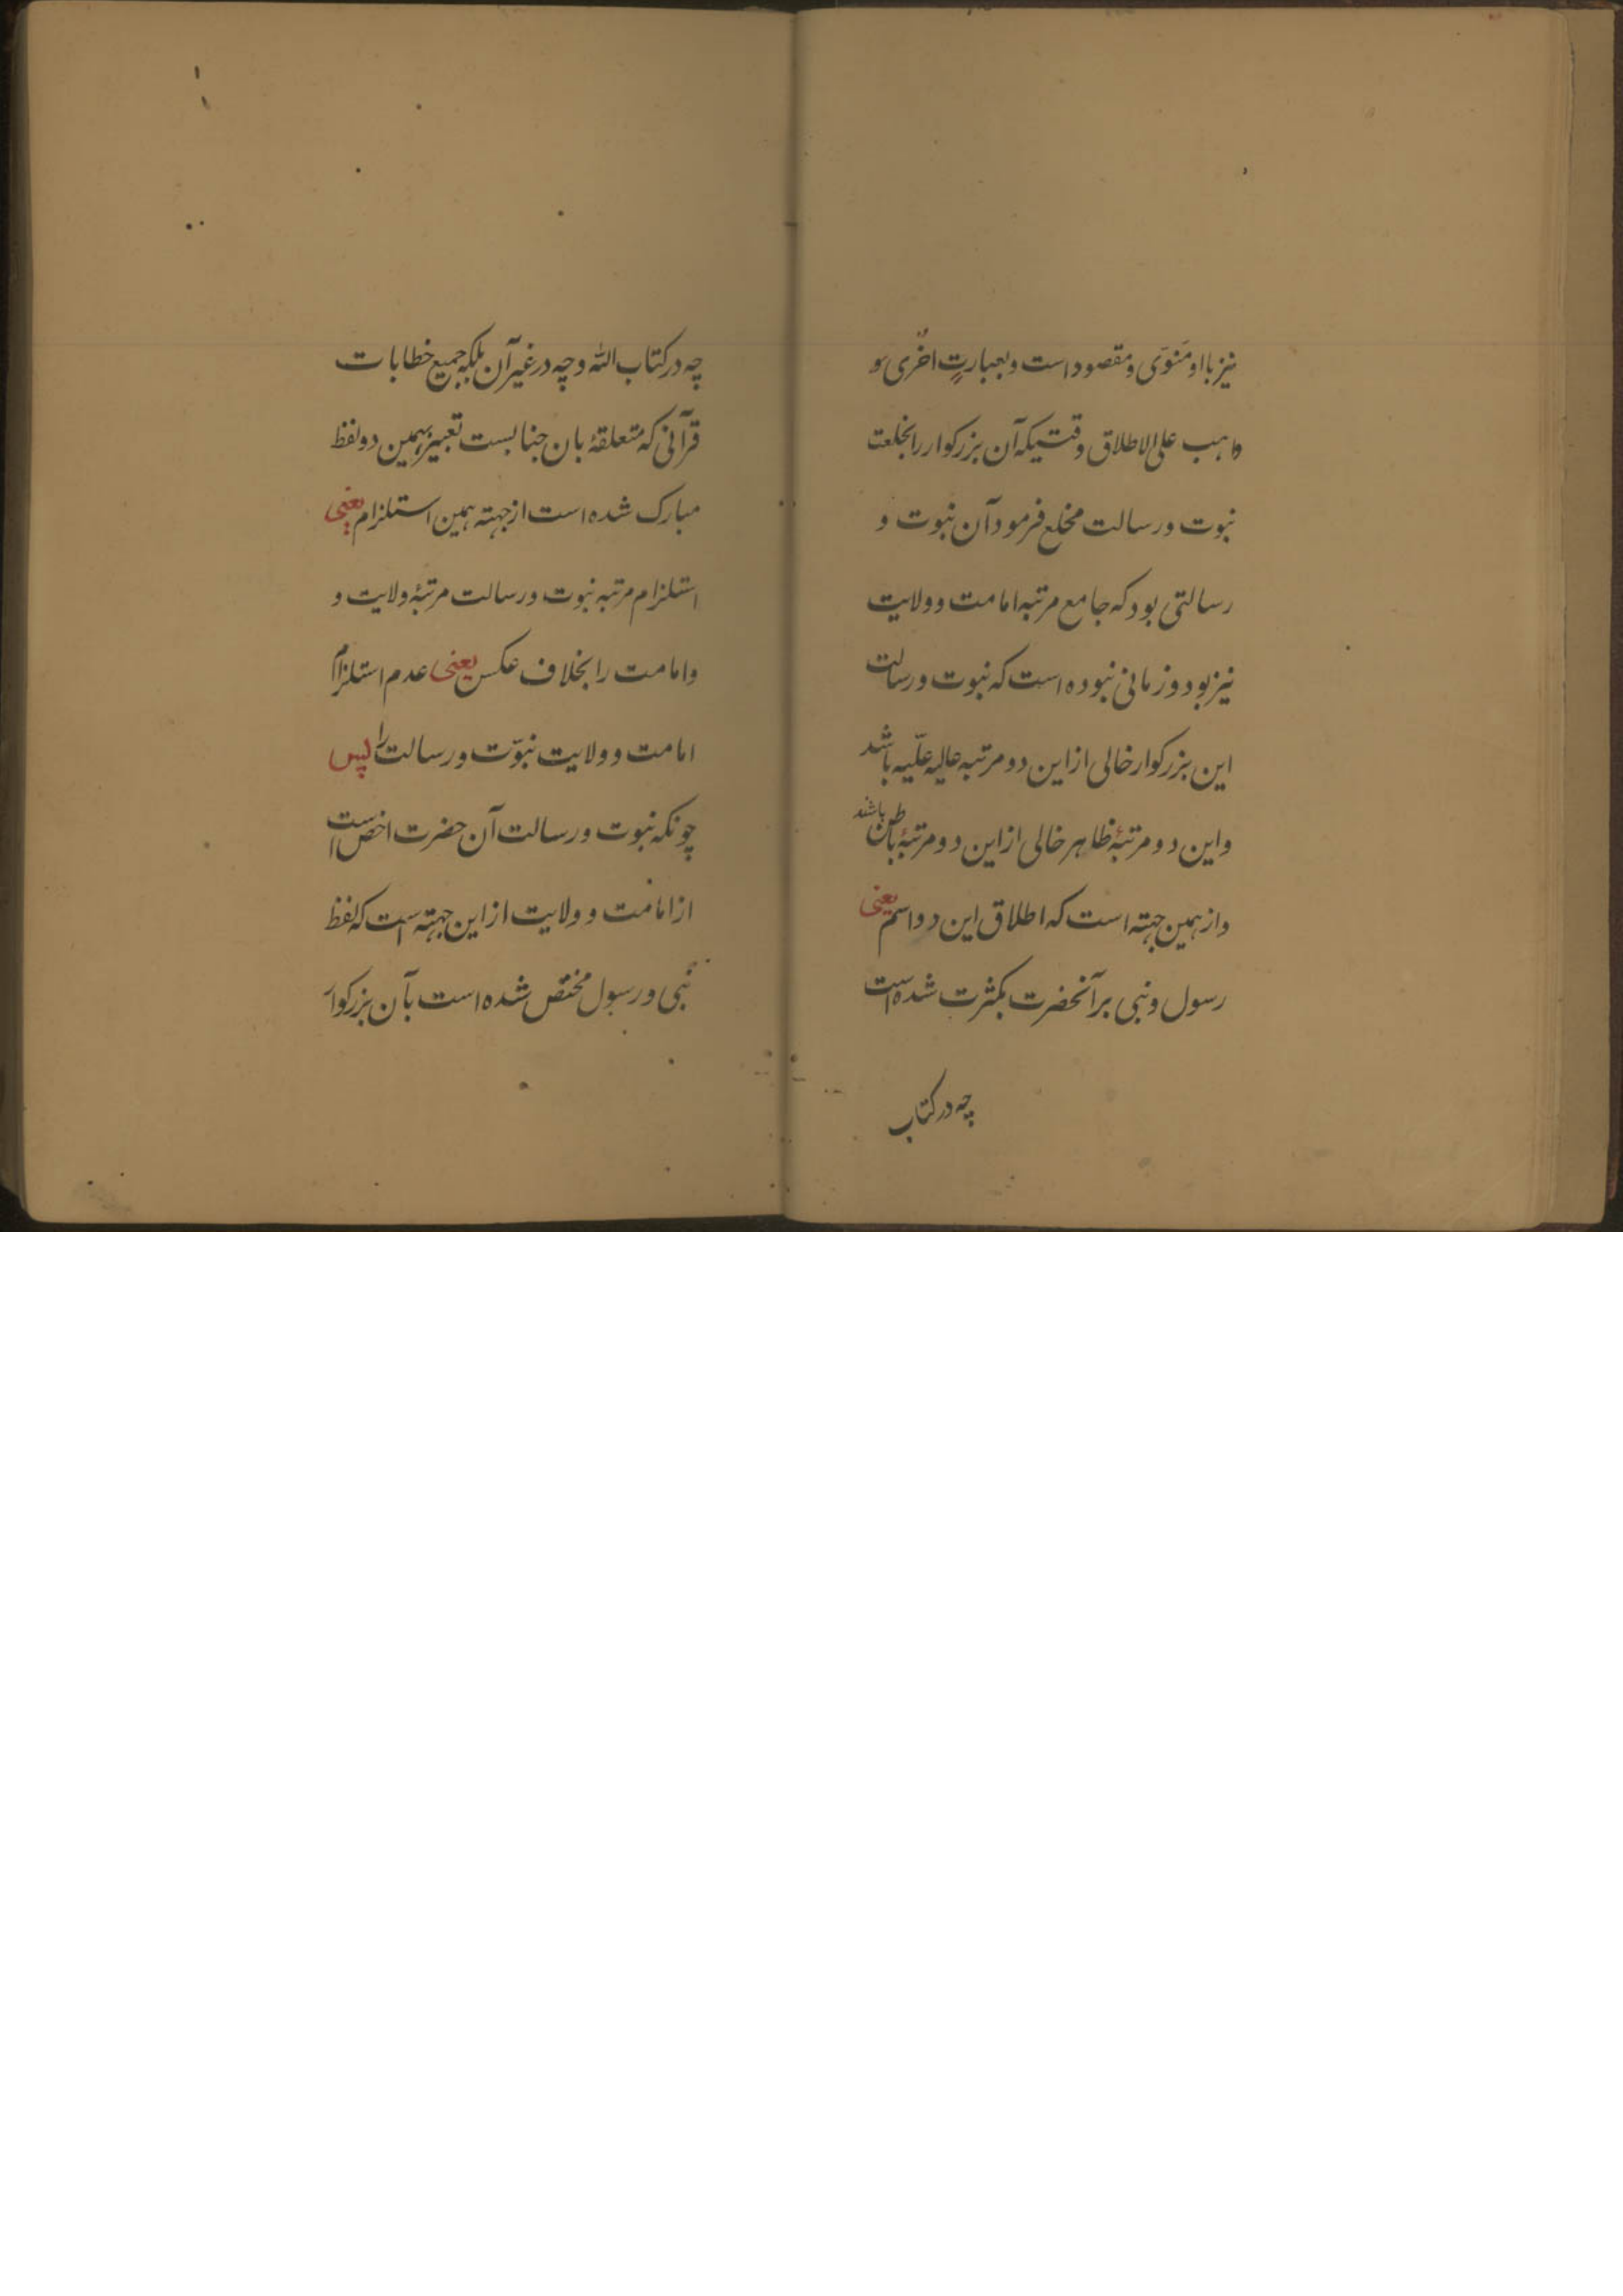 نیز با او منوّی و مقصود است و بعبارتٍ اخری
واهب علی الاطلاق وقتیکه آن بزرکوار را بخلعت
نبوت و رسالت مخلع فرمود آن نبوت و
رسالتی بود که جامع مرتبه امامت و ولایت
نیز بود و زمانی نبوده است که نبوت و رسالت
این بزرکوار خالی از این دو مرتبه عالیه علّیه باشد
و این دو مرتبهٔ ظاهر خالی از این دو مرتبهٔ باطن باشند
و از همین جهته است که اطلاق این دو اسم یعنی
رسول و نبی بر آنحضرت بکثرت شده است
چه در کتاب
چه در کتاب الله و چه در غیر آن بلکه جمیع خطابات
قرآنی که متعلقهٔ بان جنابست تعبیر بهمین دو لفظ
مبارک شده است از جهته همین استلزام یعنی
استلزام مرتبه نبوت و رسالت مرتبهٔ ولایت و
و امامت را بخلاف عکس یعنی عدم استلزام
امامت و ولایت نبوّت و رسالت را پس
چونکه نبوت و رسالت آن حضرت اخص است
از امامت و ولایت از این جهته است که لفظ
نبی و رسول مختص شده است بآن بزرکوار